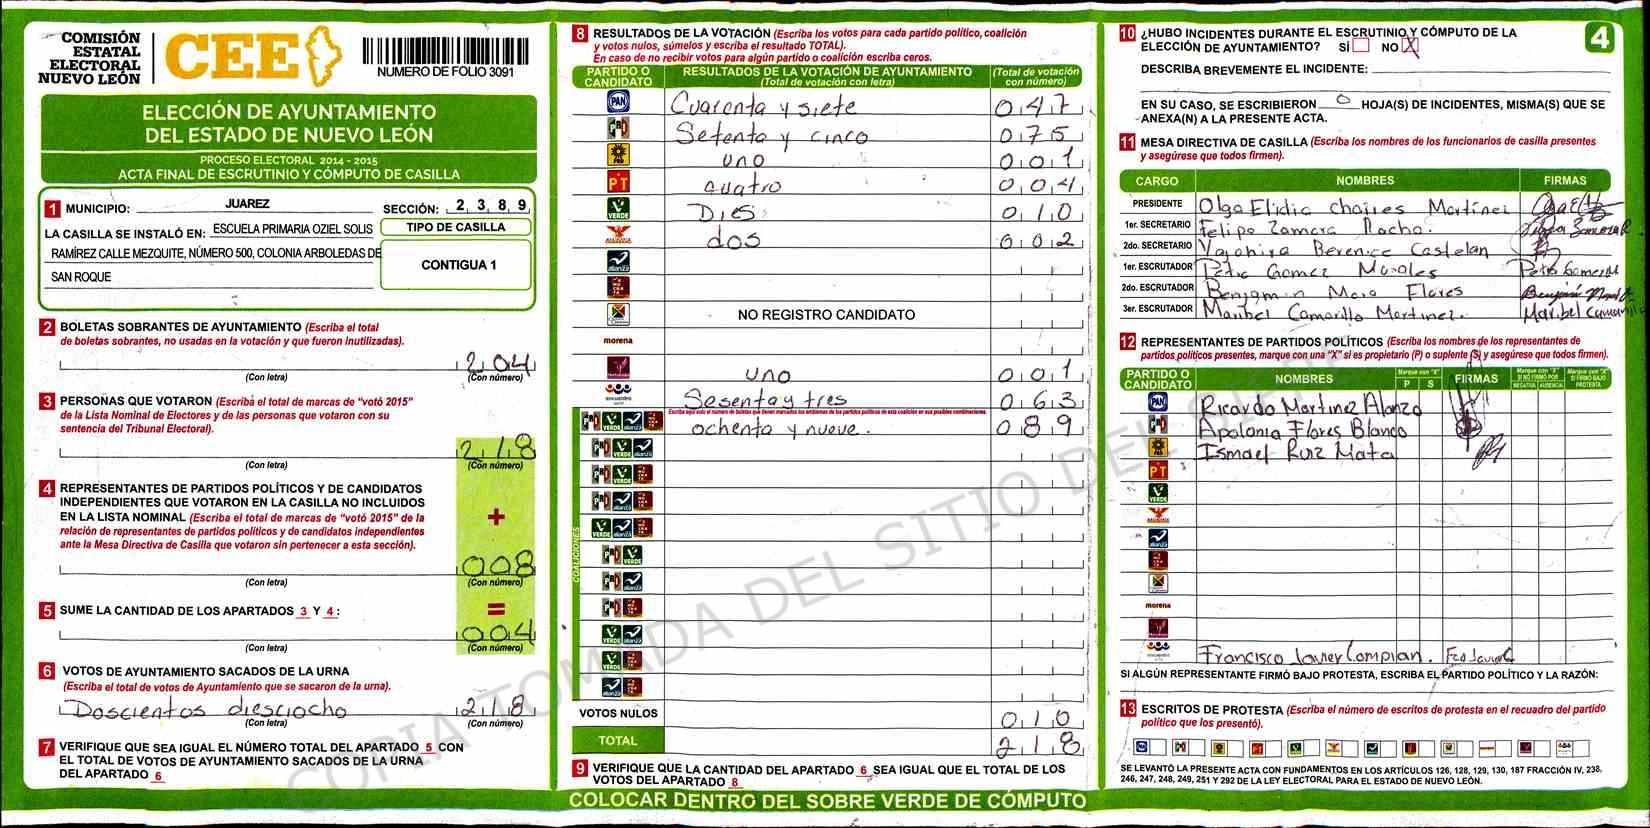 COMISIÓN
ESTATAL
ELECTORAL
NUEVO LEÓN
CEE
NUMERO DE FOLIO 3091
ELECCIÓN DE AYUNTAMIENTO
DEL ESTADO DE NUEVO LEÓN
PROCESO ELECTORAL 2014 - 2015
ACTA FINAL DE ESCRUTINIO Y CÓMPUTO DE CASILLA
1 MUNICIPIO: JUAREZ SECCIÓN: 2 3 8 9
LA CASILLA SE INSTALÓ EN: ESCUELA PRIMARIA OZIEL SOLIS
RAMÍREZ CALLE MEZQUITE, NÚMERO 500, COLONIA ARBOLEDAS DE
SAN ROQUE
TIPO DE CASILLA
CONTIGUA 1
2 BOLETAS SOBRANTES DE AYUNTAMIENTO (Escriba el total
de boletas sobrantes, no usadas en la votación y que fueron inutilizadas).
204
(Con letra) (Con número)
3 PERSONAS QUE VOTARON (Escriba el total de marcas de "votó 2015"
de la Lista Nominal de Electores y de las personas que votaron con su
sentencia del Tribunal Electoral).
218
(Con letra) (Con número)
4 REPRESENTANTES DE PARTIDOS POLÍTICOS Y DE CANDIDATOS
INDEPENDIENTES QUE VOTARON EN LA CASILLA NO INCLUIDOS
EN LA LISTA NOMINAL (Escriba el total de marcas de "votó 2015" de la
relación de representantes de partidos políticos y de candidatos independientes
ante la Mesa Directiva de Casilla que votaron sin pertenecer a esta sección).
+
008
(Con letra) (Con número)
5 SUME LA CANTIDAD DE LOS APARTADOS 3 Y 4 :
=
004
(Con letra) (Con número)
6 VOTOS DE AYUNTAMIENTO SACADOS DE LA URNA
(Escriba el total de votos de Ayuntamiento que se sacaron de la urna).
Doscientos diesciocho 218
(Con letra) (Con número)
7 VERIFIQUE QUE SEA IGUAL EL NÚMERO TOTAL DEL APARTADO 5 CON
EL TOTAL DE VOTOS DE AYUNTAMIENTO SACADOS DE LA URNA
DEL APARTADO 6
8 RESULTADOS DE LA VOTACIÓN (Escriba los votos para cada partido político, coalición
y votos nulos, súmelos y escriba el resultado TOTAL).
En caso de no recibir votos para algún partido o coalición escriba ceros.
PARTIDO O CANDIDATO RESULTADOS DE LA VOTACIÓN DE AYUNTAMIENTO (Total de votación con letra) (Total de votación con número)
PAN Cuarenta y siete 047
PRD Setenta y cinco 075
PRD uno 001
PT cuatro 004
VERDE Dies 010
dos 002
alianza
NO REGISTRO CANDIDATO
morena
uno 001
encuentro Sesenta y tres 063
Escriba aquí solo el número de boletas que tienen marcados los emblemas de los partidos políticos de esta coalición en sus posibles combinaciones.
VERDE alianza ochenta y nueve. 089
COALICIONES
VOTOS NULOS 010
TOTAL 218
9 VERIFIQUE QUE LA CANTIDAD DEL APARTADO 6 SEA IGUAL QUE EL TOTAL DE LOS
VOTOS DEL APARTADO 8
COLOCAR DENTRO DEL SOBRE VERDE DE CÓMPUTO
10 ¿HUBO INCIDENTES DURANTE EL ESCRUTINIO Y CÓMPUTO DE LA
ELECCIÓN DE AYUNTAMIENTO? SÍ NO X
4
DESCRIBA BREVEMENTE EL INCIDENTE:
EN SU CASO, SE ESCRIBIERON 0 HOJA(S) DE INCIDENTES, MISMA(S) QUE SE
ANEXA(N) A LA PRESENTE ACTA.
11 MESA DIRECTIVA DE CASILLA (Escriba los nombres de los funcionarios de casilla presentes
y asegúrese que todos firmen).
CARGO NOMBRES FIRMAS
PRESIDENTE Olga Elidia Chaires Martínez
1er. SECRETARIO Felipo Zamora Rocha.
2do. SECRETARIO Berenice Castelan
1er. ESCRUTADOR Petra Gomez Morales
2do. ESCRUTADOR Benjamin Mara Flores
3er. ESCRUTADOR Maribel Camarillo Martinez. Maribel Camarillo
12 REPRESENTANTES DE PARTIDOS POLÍTICOS (Escriba los nombres de los representantes de
partidos políticos presentes, marque con una "X" si es propietario (P) o suplente (S) y asegúrese que todos firmen).
PARTIDO O CANDIDATO NOMBRES Marque con "X" P S FIRMAS Marque con "X" SI NO FIRMÓ POR NEGATIVA AUSENCIA Marque con "X" SI FIRMÓ BAJO PROTESTA
PAN Ricardo Martinez Alonzo
Apolonia Flores Blanco
Ismael Ruiz Mata
PT
VERDE
alianza
morena
encuentro Francisco Javier Compian.
SI ALGÚN REPRESENTANTE FIRMÓ BAJO PROTESTA, ESCRIBA EL PARTIDO POLÍTICO Y LA RAZÓN:
13 ESCRITOS DE PROTESTA (Escriba el número de escritos de protesta en el recuadro del partido
político que los presentó).
SE LEVANTÓ LA PRESENTE ACTA CON FUNDAMENTOS EN LOS ARTÍCULOS 126, 128, 129, 130, 187 FRACCIÓN IV, 238,
246, 247, 248, 249, 251 Y 292 DE LA LEY ELECTORAL PARA EL ESTADO DE NUEVO LEÓN.
COPIA TOMADA DEL SITIO DEL